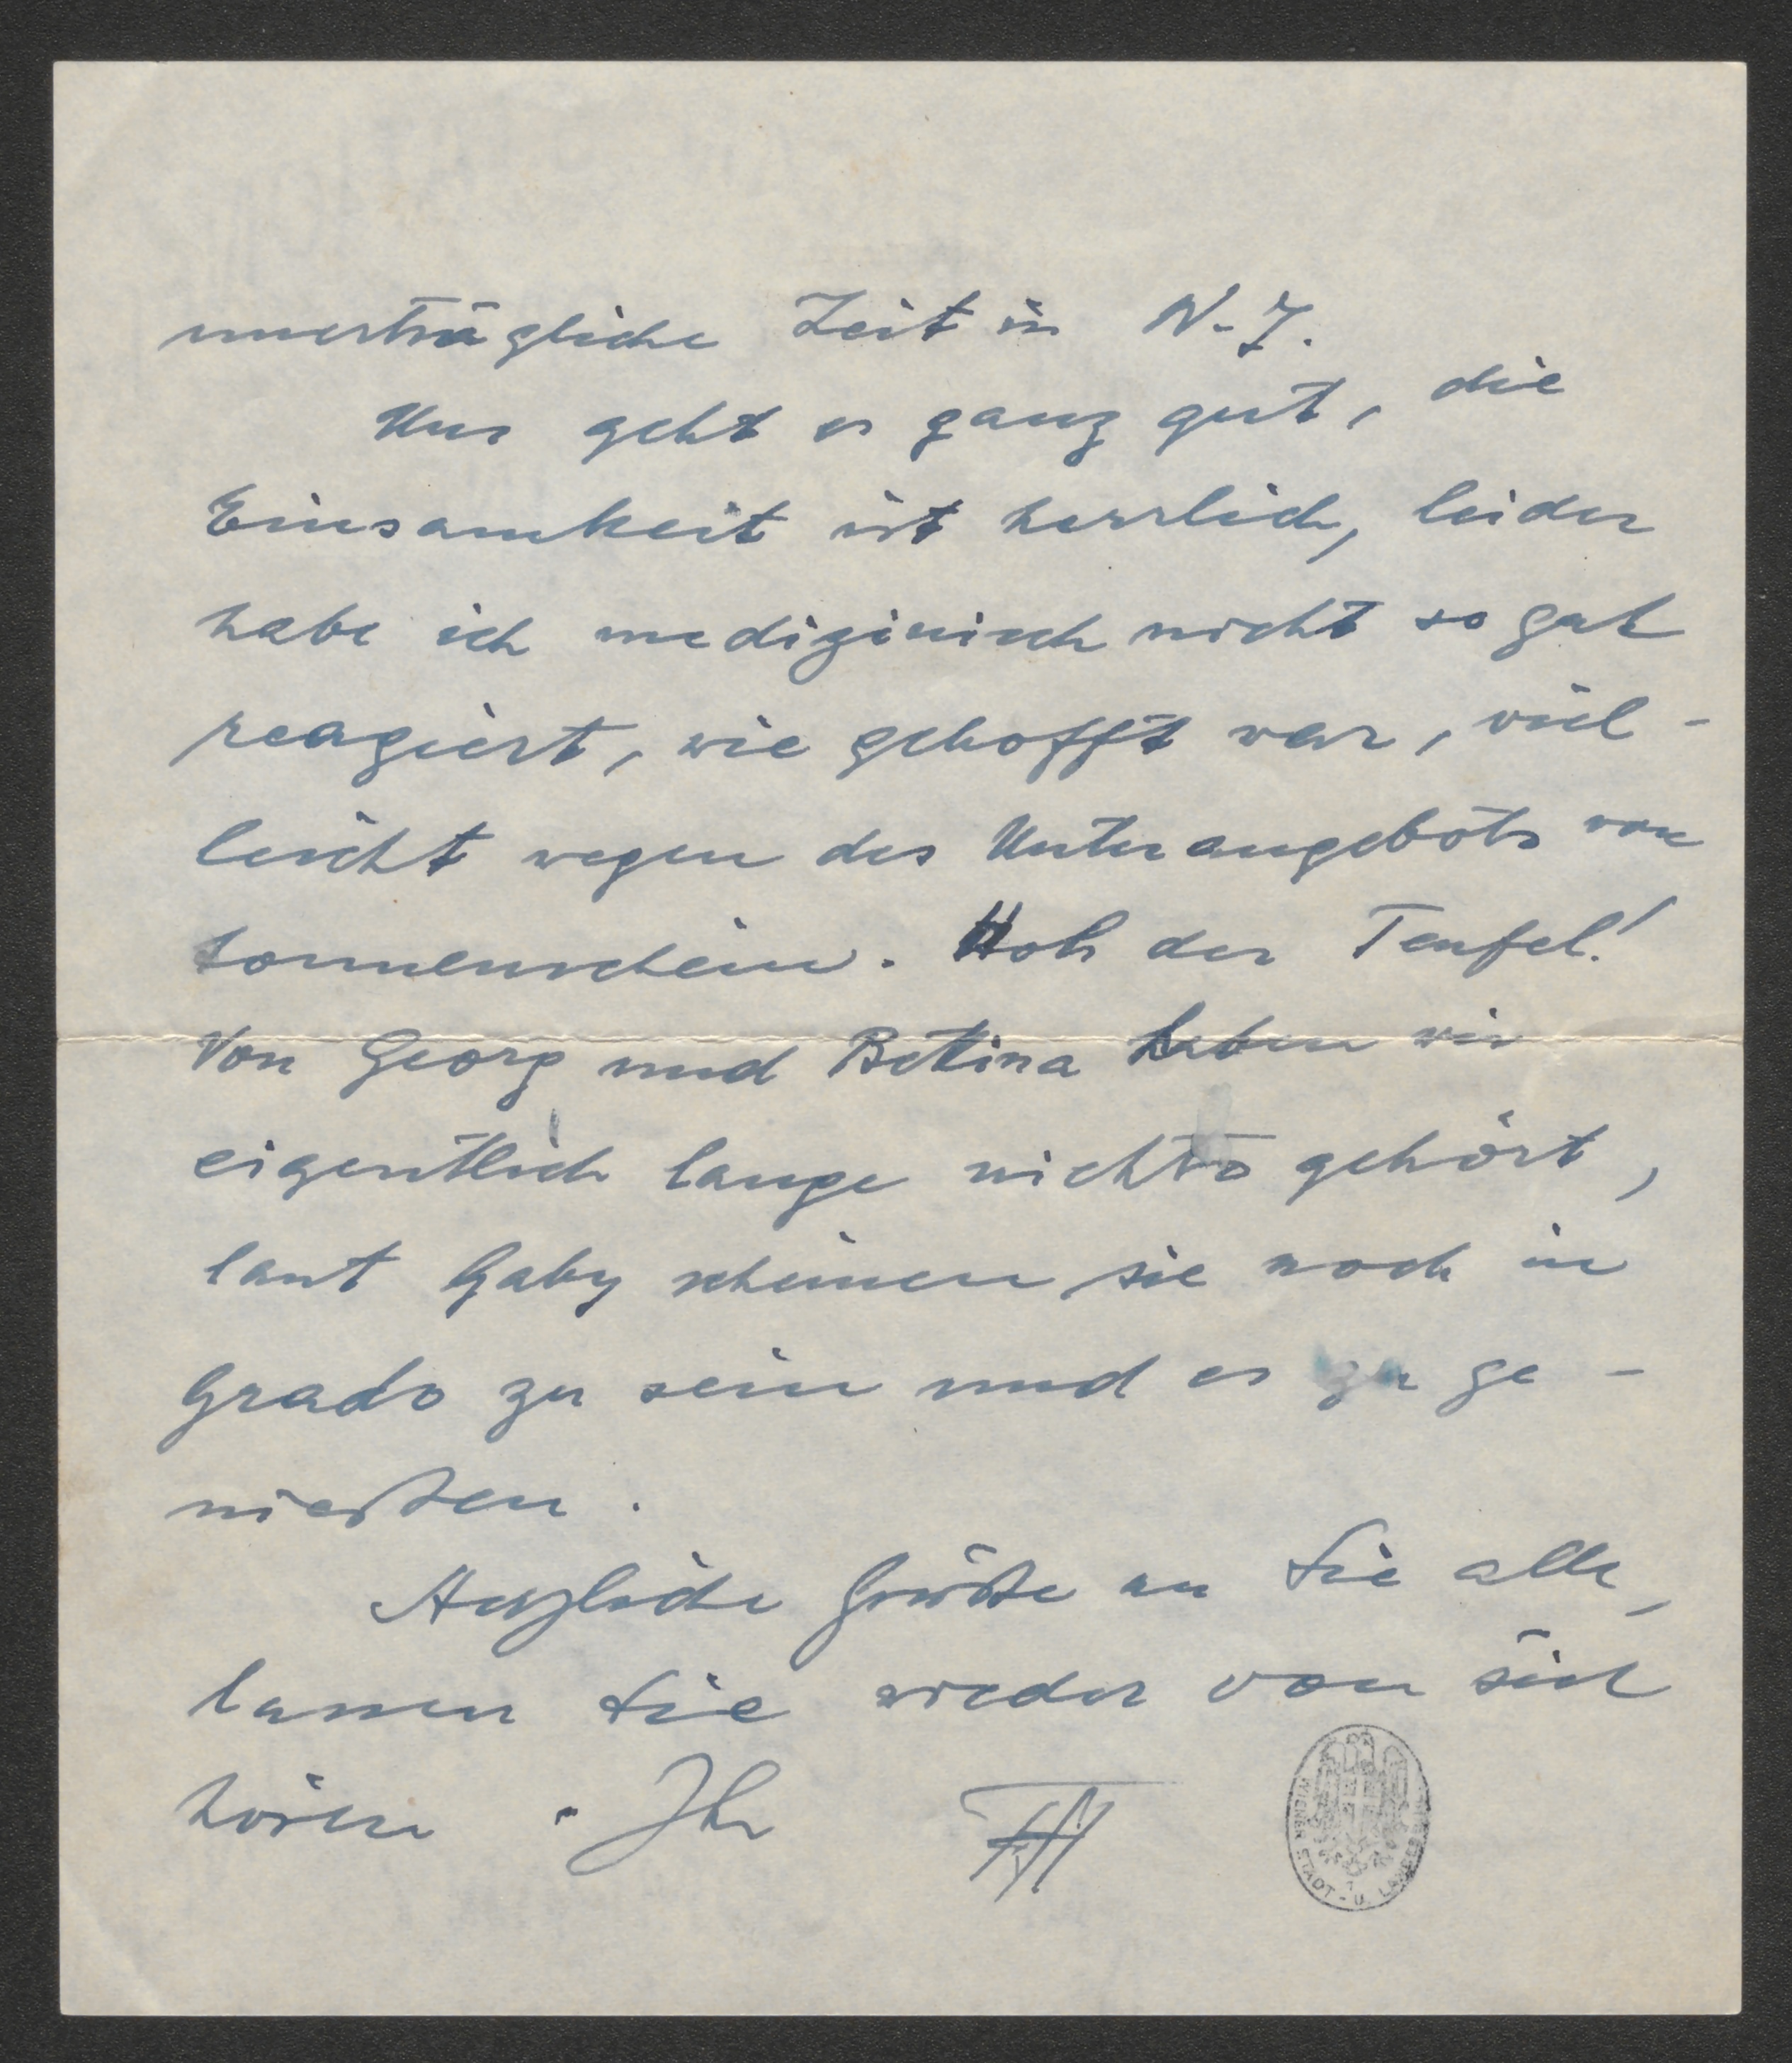 unerträgliche Zeit in N-Y.
Uns geht es ganz gut, die
Einsamkeit ist herrlich, leider
habe ich medizinisch nicht so gut
reagiert, wie gehofft war, viel-
leicht wegen des Unterangebots von
Sonnenschein. Hols der Teufel!
Von Georg und Bettina haben wir
eigentlich lange nichts gehört,
laut Gaby scheinen sie noch in
Grado zu sein und es zu ge-
nießen.
Herzliche Grüße an Sie alle,
lassen Sie wieder von sich
hören. Ihr
WIENER STADT- U. LANDES